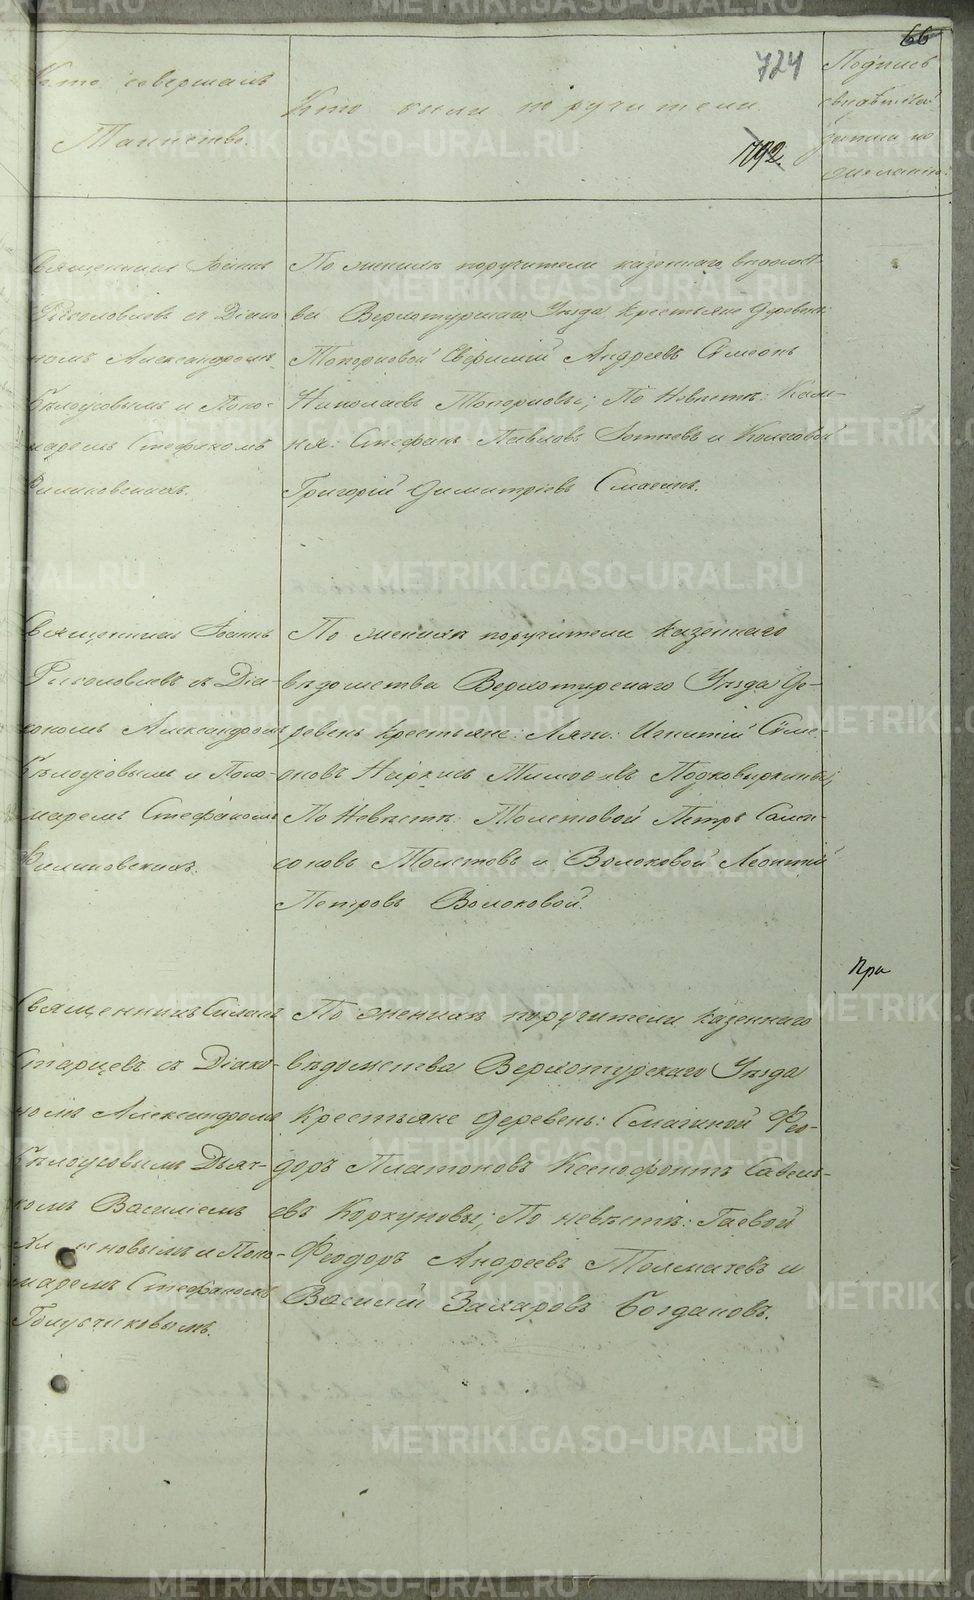 66
724
1792.
Кто совершалъ
Таинство.
Кто были поручители.
Подпись
свидѣтелей
записи по
желанію.
Священникъ Іоаннъ
Діако-
номъ Александромъ
Бѣлоусовымъ и Поно-
маремъ Стефаномъ
По женихѣ поручители казеннаго вѣдомст-
ва Верхотурскаго Уѣзда Крестьяне Деревень
Топорковой Евфимій Андреевъ Симеонъ
Николаевъ Топорковы; По Невѣстѣ: Кам-
ня: Стефанъ Павловъ Зотеевъ и Колесовой
Григорій Димитріевъ Смагинъ.
Священникъ Іоаннъ
съ Діа-
кономъ Александромъ
Бѣлоусовымъ и Поно-
маремъ Стефаномъ
По женихѣ поручители казеннаго
вѣдомства Верхотурскаго Уѣзда Де-
ревень Крестьяне: Ляги: Игнатій Симе-
оновъ Наркисъ Тимофеевъ Подковыркины;
По Невѣстѣ: Толстовой Петръ Самп-
соновъ Толстовъ и Волоковой Леонтій
Петровъ Волоковой.
При
Священникъ Силазъ
Старцевъ съ Діако-
номъ Александромъ
Бѣлоусовымъ Дьяч-
комъ Василіемъ
новымъ и Поно-
маремъ Стефаномъ
Голубчиковымъ.
По женихѣ поручители казеннаго
вѣдомства Верхотурскаго Уѣзда
Крестьяне Деревень: Смагиной Фео-
доръ Платоновъ Ксенофонтъ Савель-
евъ Коркуновы; По невѣстѣ: Гаевой
Феодоръ Андреевъ Толмачевъ и
Василій Захаровъ Богдановъ.
METRIKI.GASO-URAL.RU